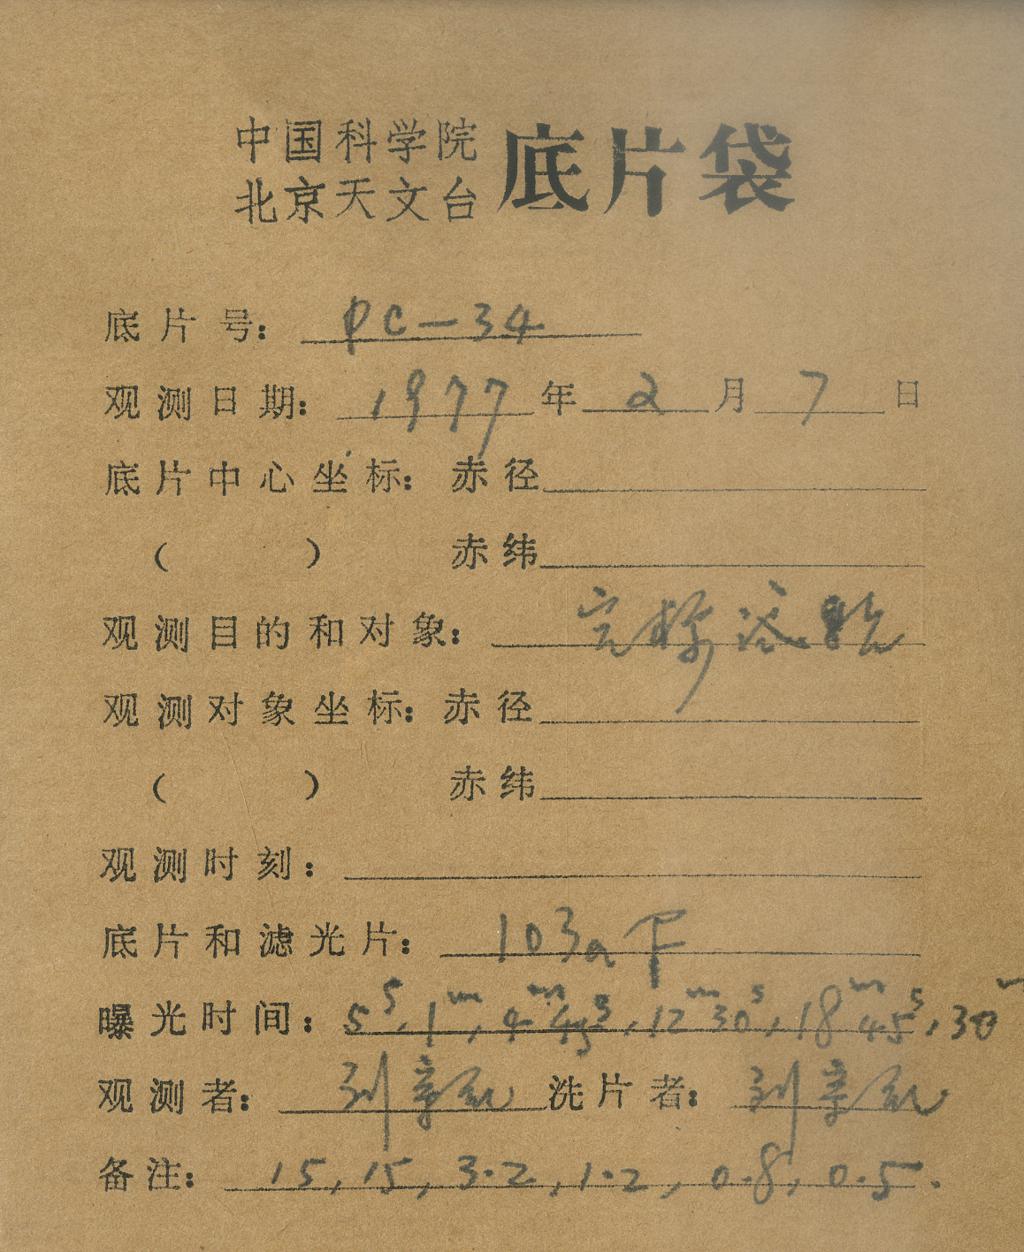 中国科学院
北京天文台 底片袋
底片号: PC-34
观测日期: 1977年2月7日
底片中心坐标: 赤径
( ) 赤纬
观测目的和对象: 试验
观测对象坐标: 赤径
( ) 赤纬
观测时刻:
底片和滤光片: 103aF
曝光时间: 5ˢ, 1ᵐ, 4ᵐ45ˢ, 12ᵐ30ˢ, 18ᵐ45ˢ, 30ᵐ
观测者: 刘 洗片者: 刘
备注: 15, 15, 3.2, 1.2, 0.8, 0.5.